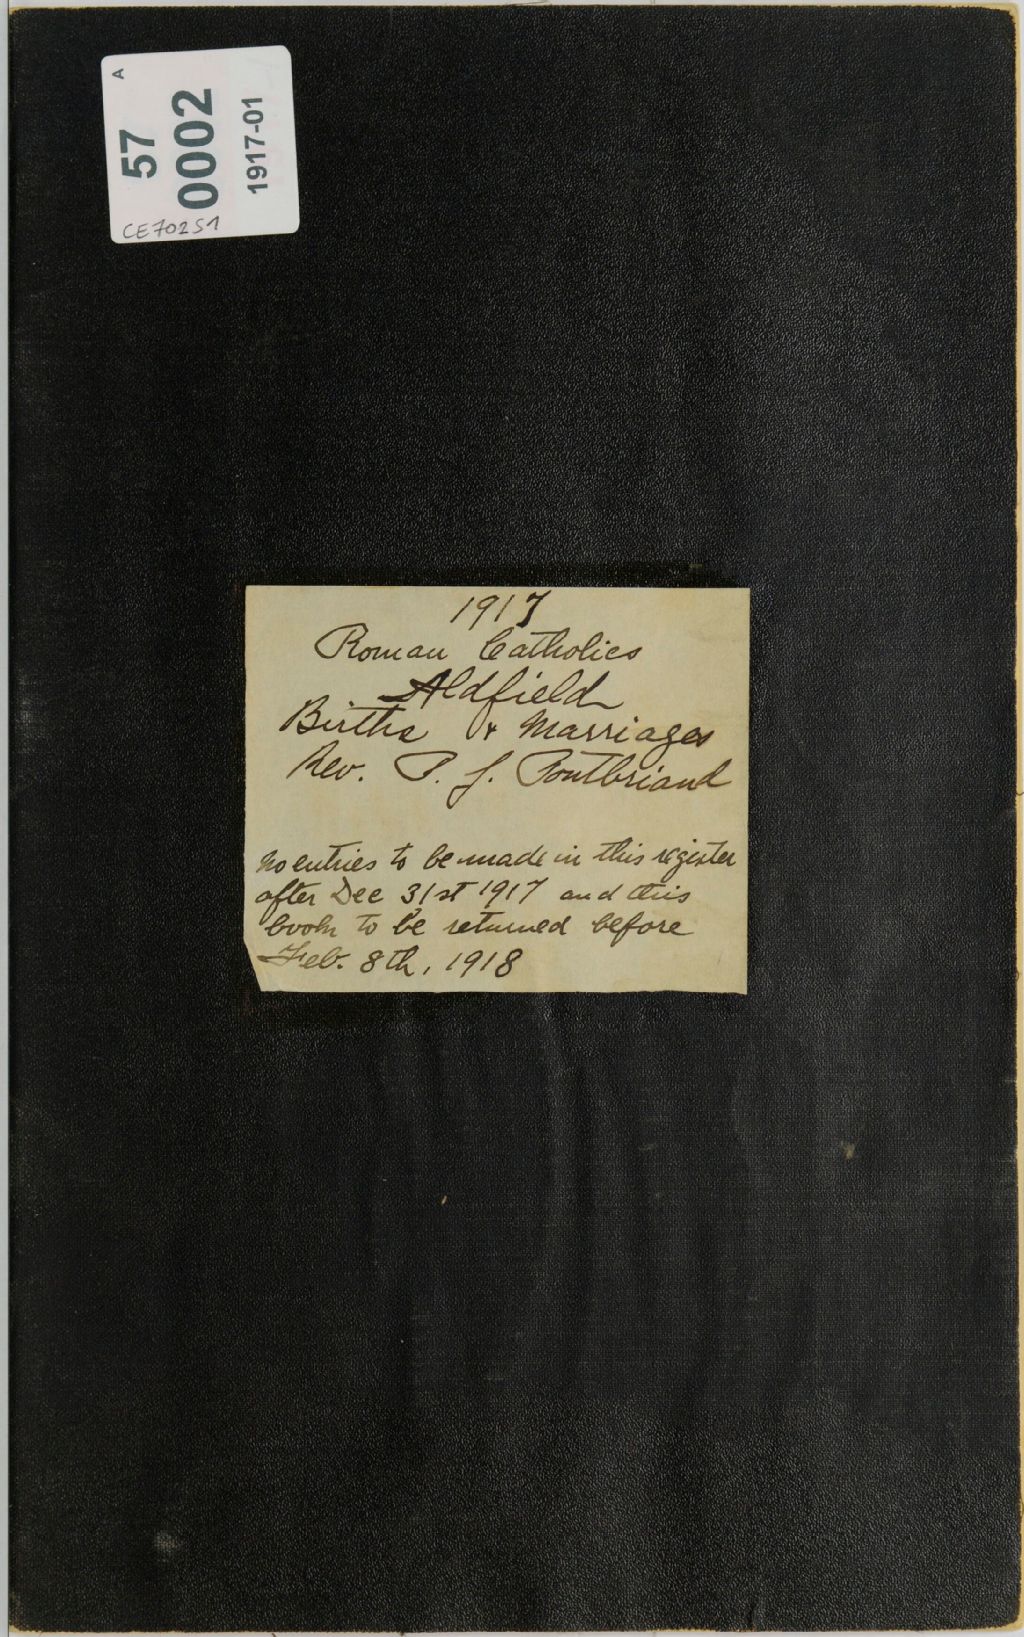 A
57
0002
1917-01
CE702S1
1917
Roman Catholics
Aldfield
Births & Marriages
Rev. P. J. Pontbriand
No entries to be made in this register
after Dec 31st 1917 and this
book to be returned before
Feb. 8th, 1918